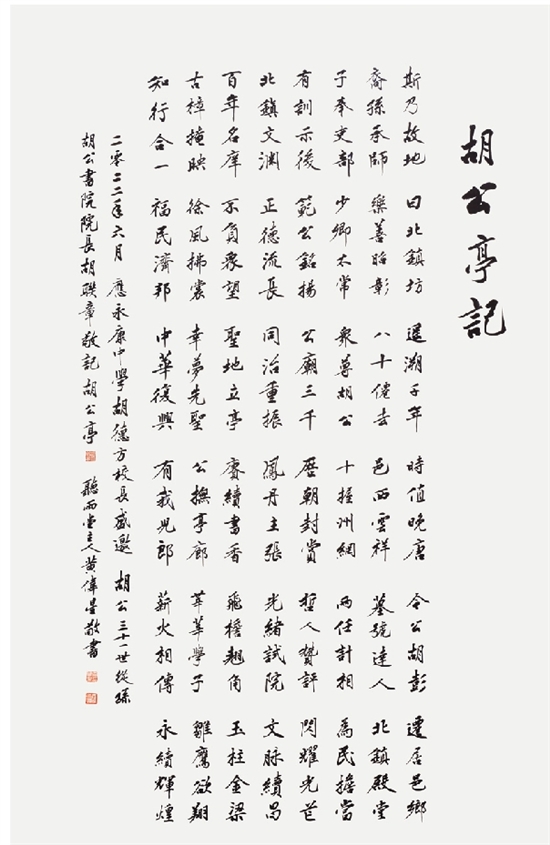 胡公亭記
斯乃故地 曰北鎮坊 遥溯千年 時值晚唐 令公胡彭 遷居邑鄉
裔孫承師 樂善昭彰 八十僊去 邑西雲祥 墓號達人 北鎮殿堂
子奉吏部 少卿太常 衆尊胡公 十握州綱 兩任計相 爲民擔當
有訓示後 範公銘揚 公廟三千 歷朝封賞 哲人贊評 閃耀光芒
北鎮文渊 正德流長 同治重振 鳳丹主張 光緒試院 文脉續昌
百年名庠 不負衆望 聖地立亭 賡續書香 飛檐翹角 玉柱金梁
古樟掩映 徐風拂裳 幸夢先聖 公撫亭廊 莘莘學子 雛鷹欲翔
知行合一 福民濟邦 中華復興 有我兒郎 薪火相傳 永續輝煌
二零二二年六月 應永康中學胡德方校長盛邀 胡公三十一世從孫
胡公書院院長胡联章敬記胡公亭 聽雨堂主人黄偉星敬書